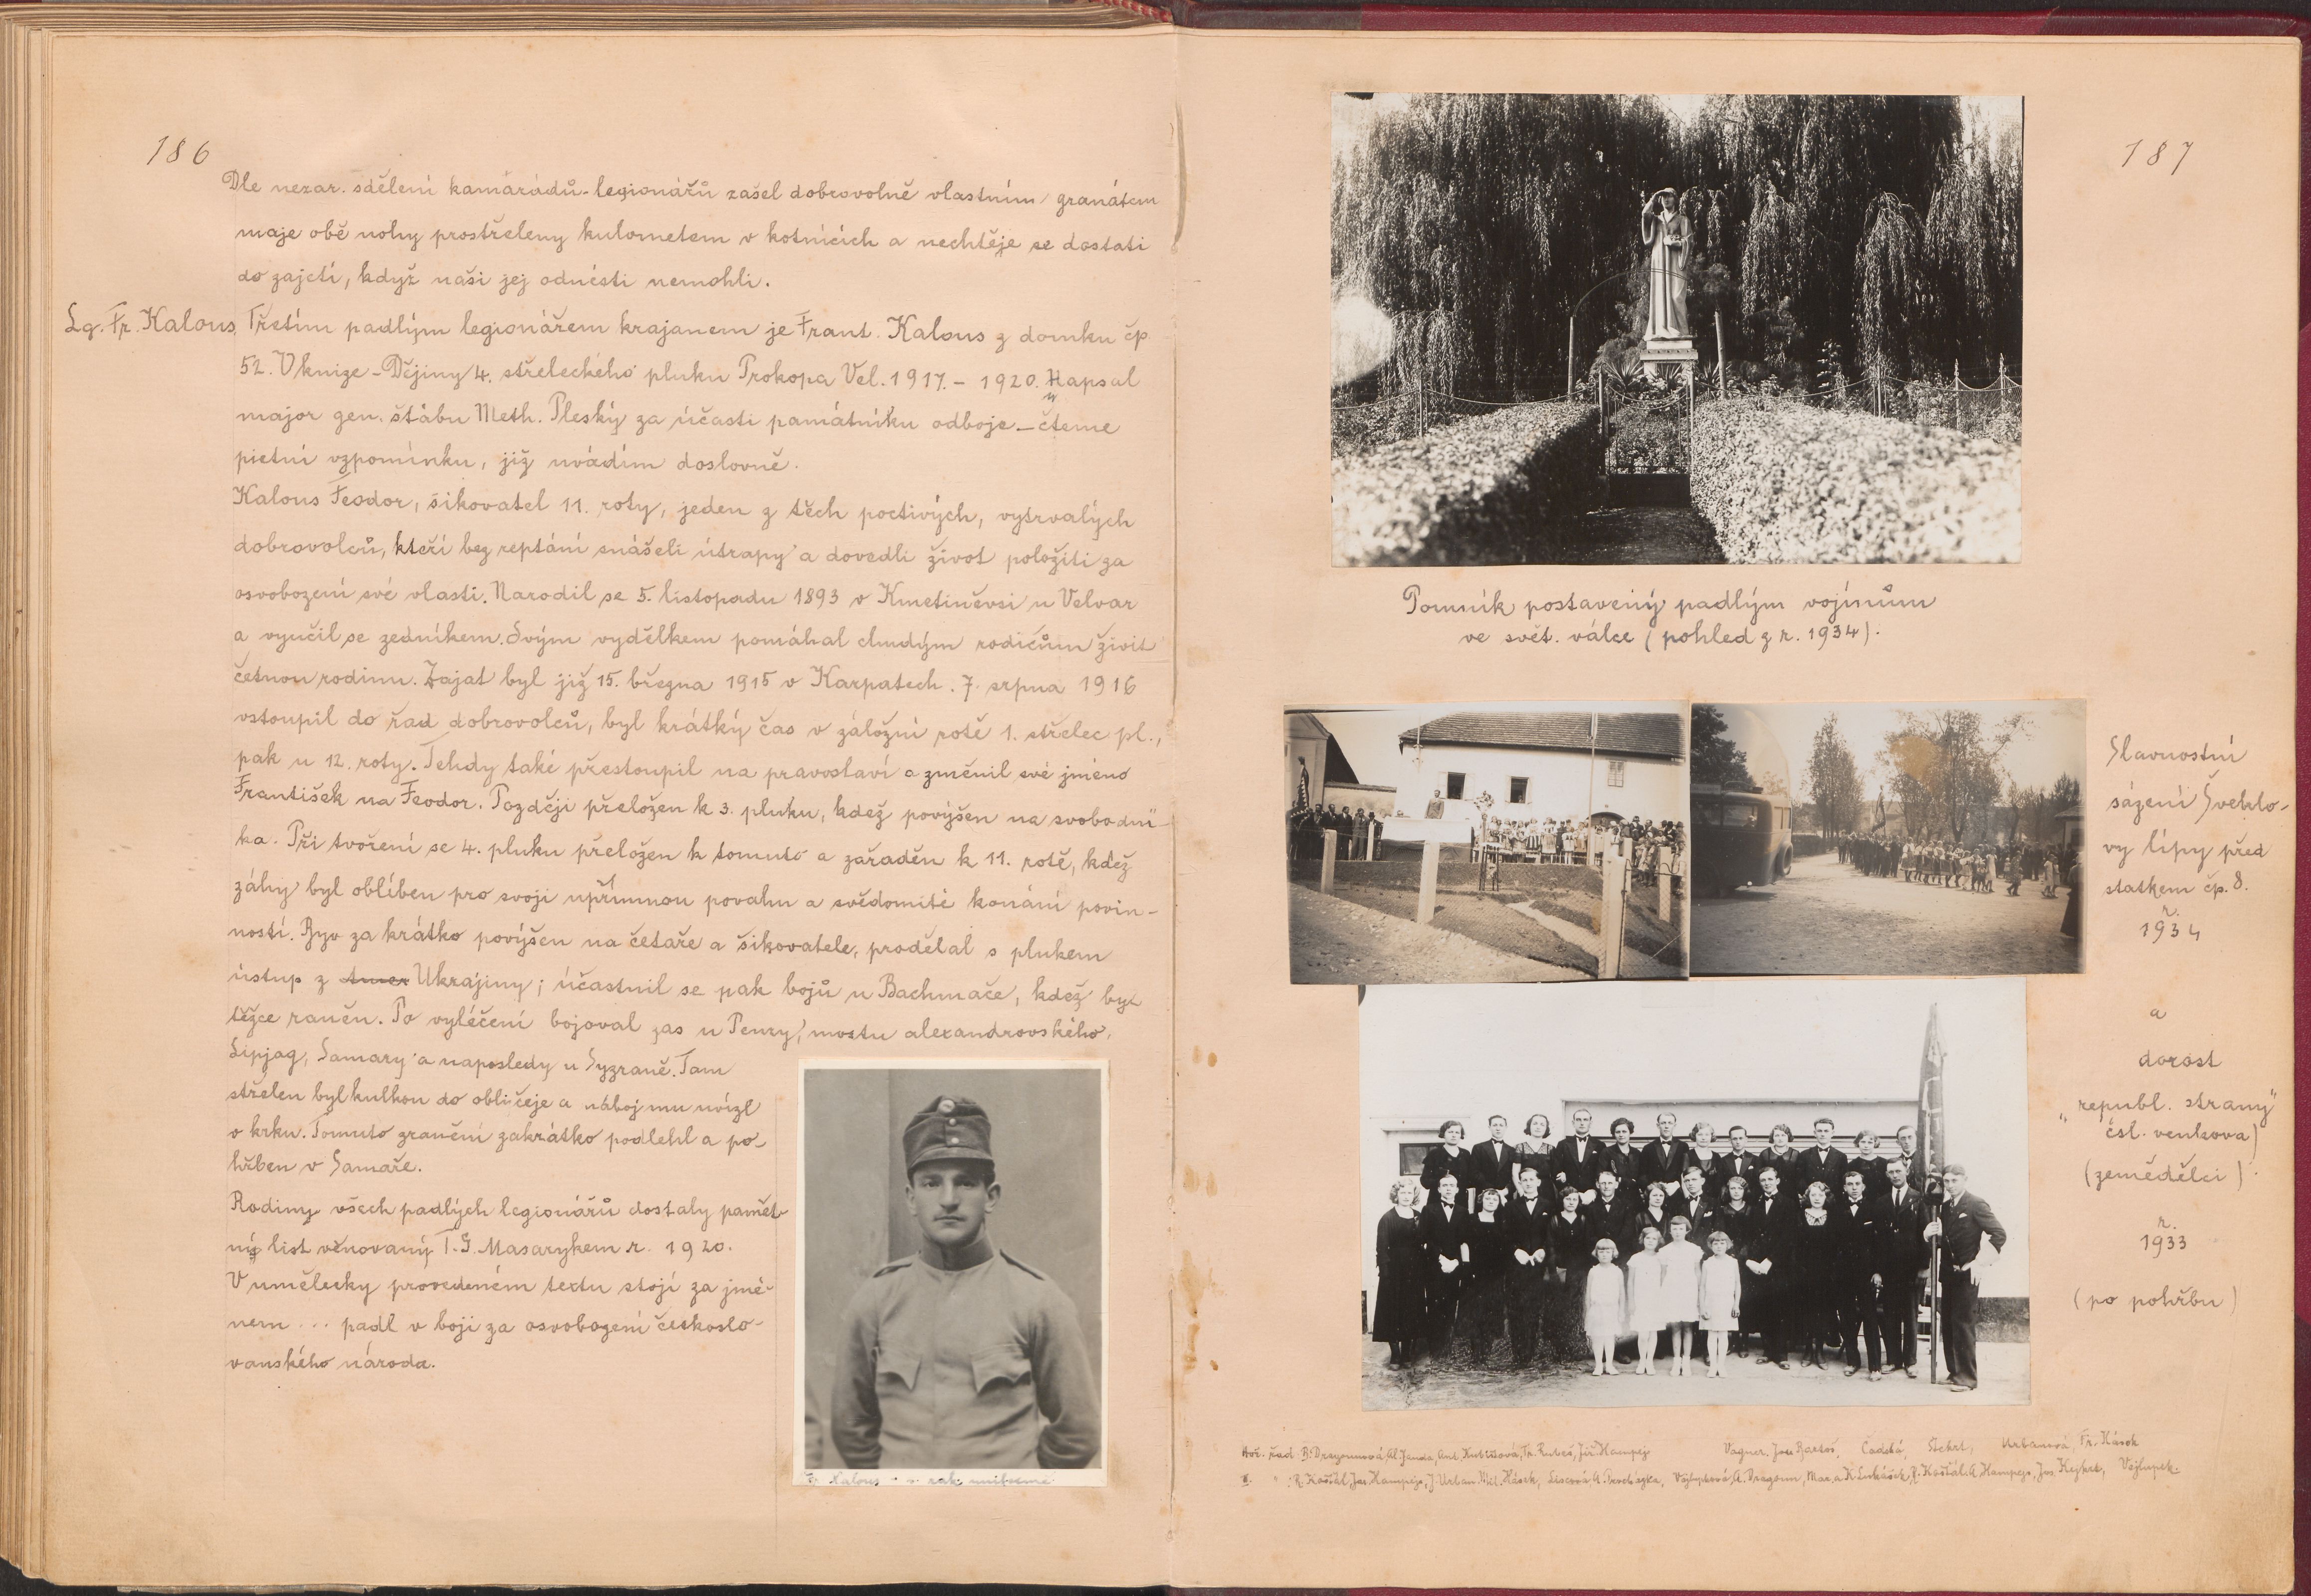 186
Dle nezar. sdělení kamarádů-legionářů zašel dobrovolně vlastním granátem
maje obě nohy prostřeleny kulometem v kotnících a nechtěje se dostati
do zajetí, když naši jej odnésti nemohli.
Lg. Fr. Kalous. Třetím padlým legionářem krajanem je Frant. Kalous z domku čp.
52. V knize - Dějiny 4. střeleckého pluku Prokopa Vel. 1917. - 1920. Napsal
major gen. štábu Meth. Pleský za účasti památníku odboje - čteme
pietní vzpomínku, již uvádím doslovně.
Kalous Feodor, šikovatel 11. roty, jeden z těch poctivých, vytrvalých
dobrovolců, kteří bez reptání snášeli útrapy a dovedli život položiti za
osvobození své vlasti. Narodil se 5. listopadu 1893 v Kmetiněvsi u Velvar
a vyučil se zedníkem. Svým vydělkem pomáhal chudým rodičům živit
četnou rodinu. Zajat byl již 15. března 1915 v Karpatech. 7. srpna 1916
vstoupil do řad dobrovolců, byl krátký čas v záložní rotě 1. střelec. pl.,
pak u 12. roty. Tehdy také přestoupil na pravoslaví a změnil své jméno
František na Feodor. Později přeložen k 3. pluku, kdež povýšen na svobodní-
ka. Při tvoření se 4. pluku přeložen k tomuto a zařaděn k 11. rotě, kdež
záhy byl oblíben pro svoji upřímnou povahu a svědomité konání povin-
ností. Byv za krátko povýšen na četaře a šikovatele, prodělal s plukem
ústup z Ukrajiny; účastnil se pak bojů u Bachmače, kdež byl
těžce raněn. Po vyléčení bojoval zas u Penzy, mostu alexandrovského,
Lipjag, Samary a naposledy u Syzraně. Tam
střelen byl kulkou do obličeje a náboj mu uvízl
v krku. Tomuto zranění zakrátko podlehl a po-
hřben v Samaře.
Rodiny všech padlých legionářů dostaly pamět-
ný list věnovaný T. G. Masarykem r. 1920.
V umělecky provedeném textu stojí za jmé-
nem ... padl v boji za osvobození českoslo-
vanského národa.
Fr. Kalous v rak. uniformě
187
Pomník postavený padlým vojínům
ve svět. válce (pohled z r. 1934).
Slavnostní
sázení Švehlo-
vy lípy před
statkem čp. 8.
r.
1934
a
dorost
„republ. strany"
čsl. venkova)
(zemědělci).
r.
1933
(po pohřbu)
Hoř. řad. B. Dragounová, Al. Janda, Ant. Kubišová, Fr. Rubeš, Jiří Hampejs Vagner, Jos. Bartoš, Čadská, Štekrt, Urbanová, Fr. Hásek
II. " R. Košťál, Jar. Hampejs, J. Urban, Mil. Hásek, A. Procházka, A. Dragoun, Mar. a K. Lukášek, R. Košťál, A. Hampejs, Jos. Kejhrt, Vejlupek